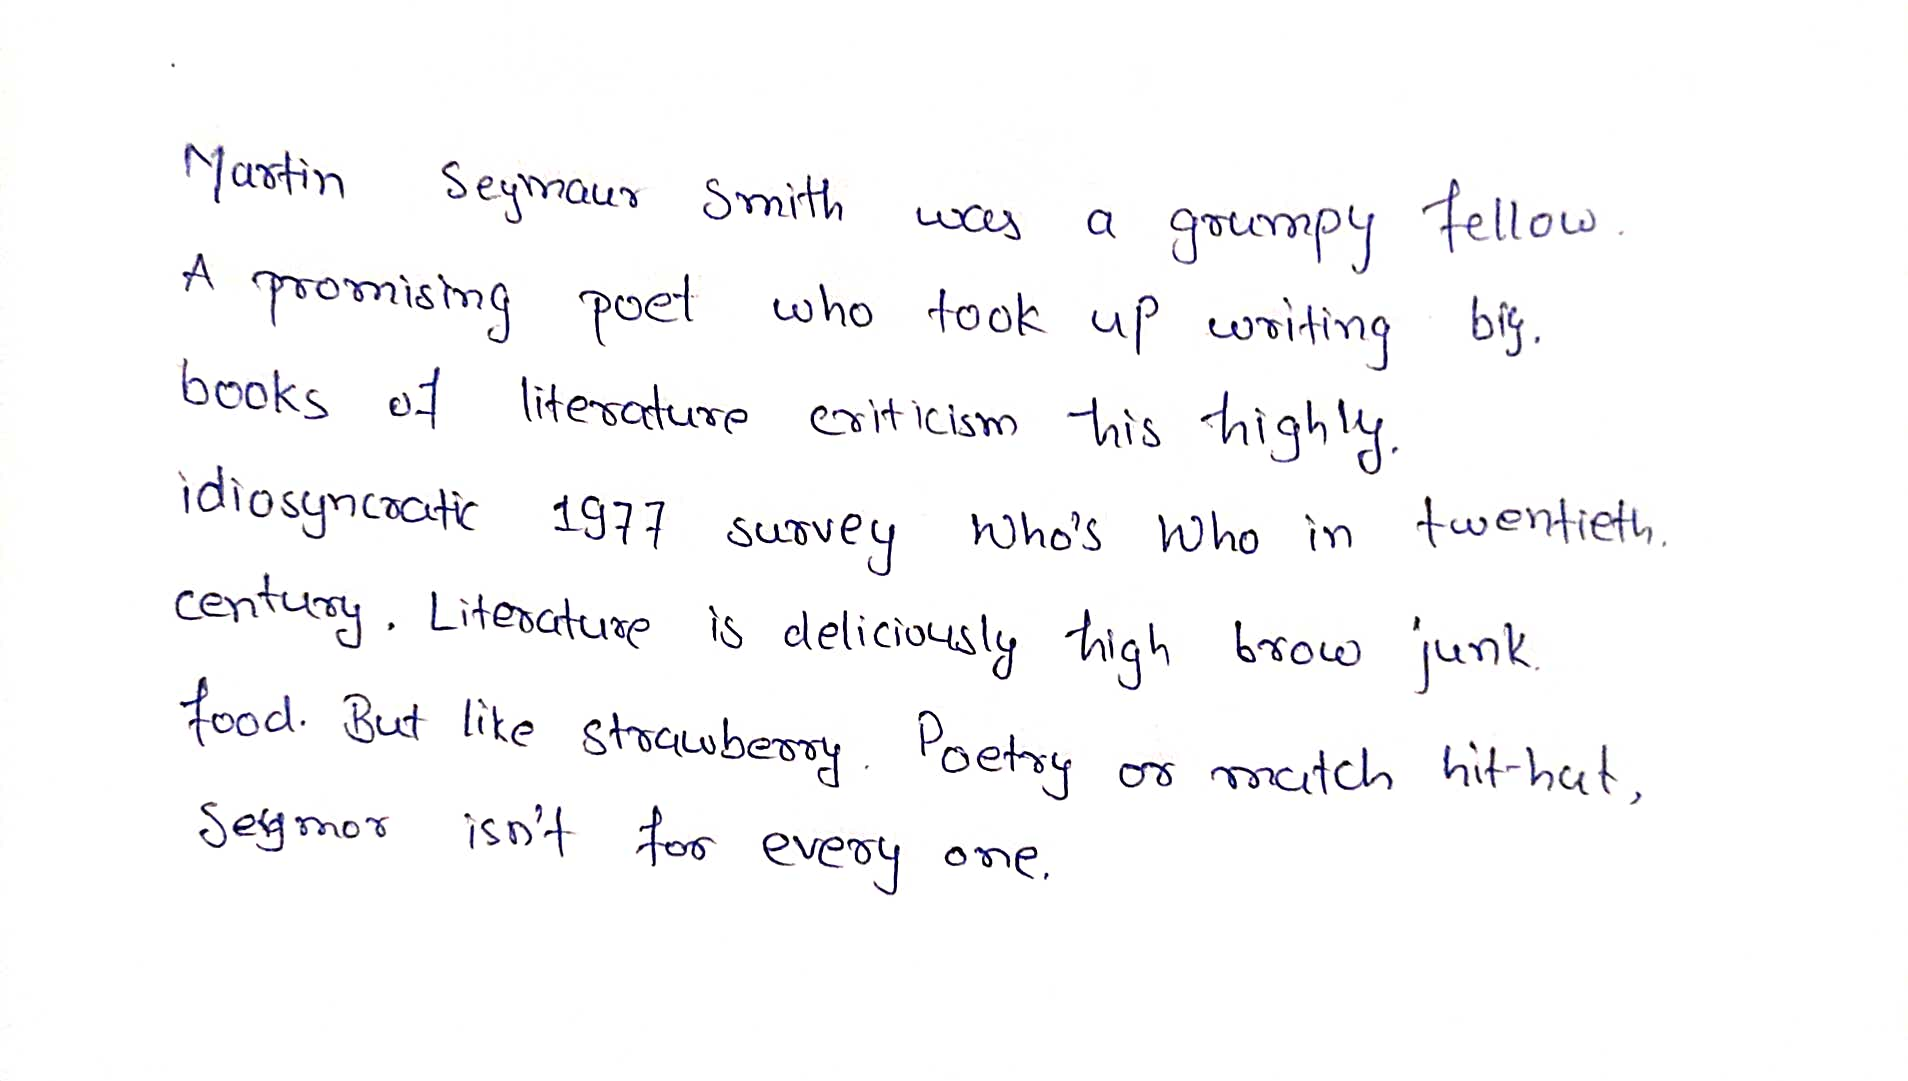 Martin Seymaur Smith was a grumpy fellow.
A promising poet who took up writing big.
books of literature criticism this highly.
idiosyncratic 1977 survey Who's Who in twentieth.
century. Literature is deliciously high brow junk.
food. But like strawberry. Poetry or match hit-hat,
Seymor isn't for every one.